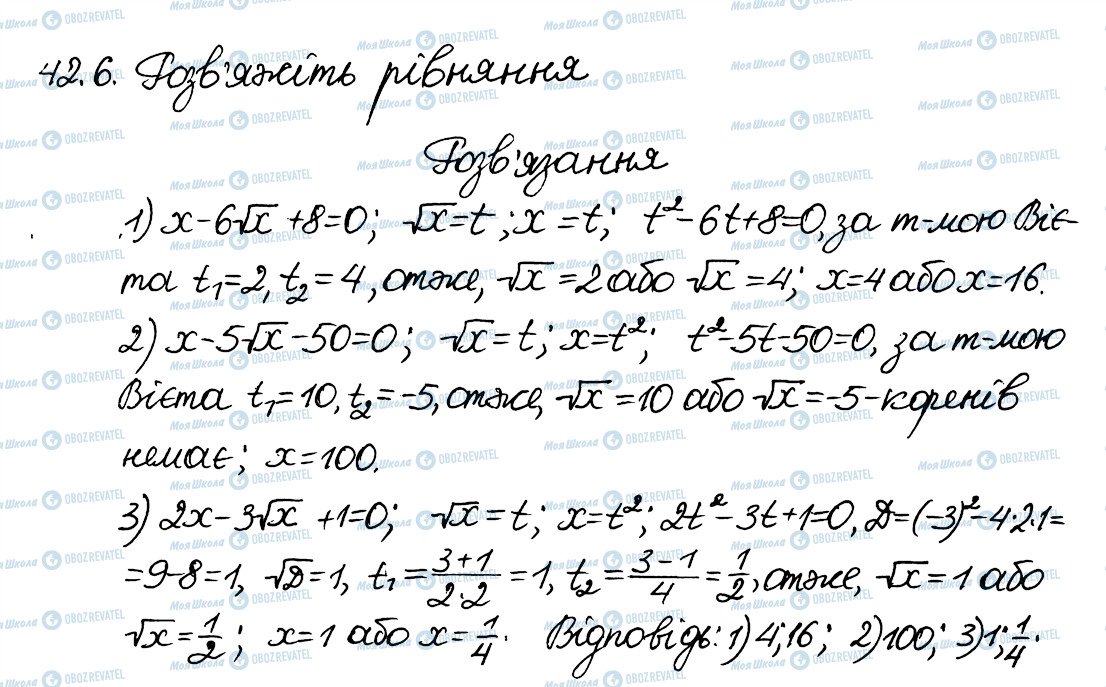 42.6. Розв'яжіть рівняння
Розв'язання
1) x-6√x+8=0; √x=t; x=t; t²-6t+8=0, за т-мою Віє-
та t₁=2, t₂=4, отже, √x=2 або √x=4; x=4 або x=16.
2) x-5√x-50=0; √x=t; x=t²; t²-5t-50=0, за т-мою
Вієта t₁=10, t₂=-5, отже, √x=10 або √x=-5-коренів
немає; x=100.
3) 2x-3√x+1=0; √x=t; x=t²; 2t²-3t+1=0, D=(-3)²-4·2·1=
=9-8=1, √D=1, t₁=(3+1)/(2·2)=1, t₂=(3-1)/4=1/2, отже, √x=1 або
√x=1/2; x=1 або x=1/4. Відповідь: 1) 4; 16; 2) 100; 3) 1; 1/4.